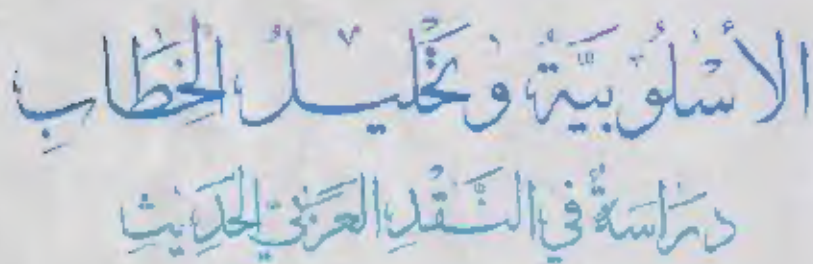 الأسلوبية وتحليل الخطاب
دراسة في النقد العربي الحديث